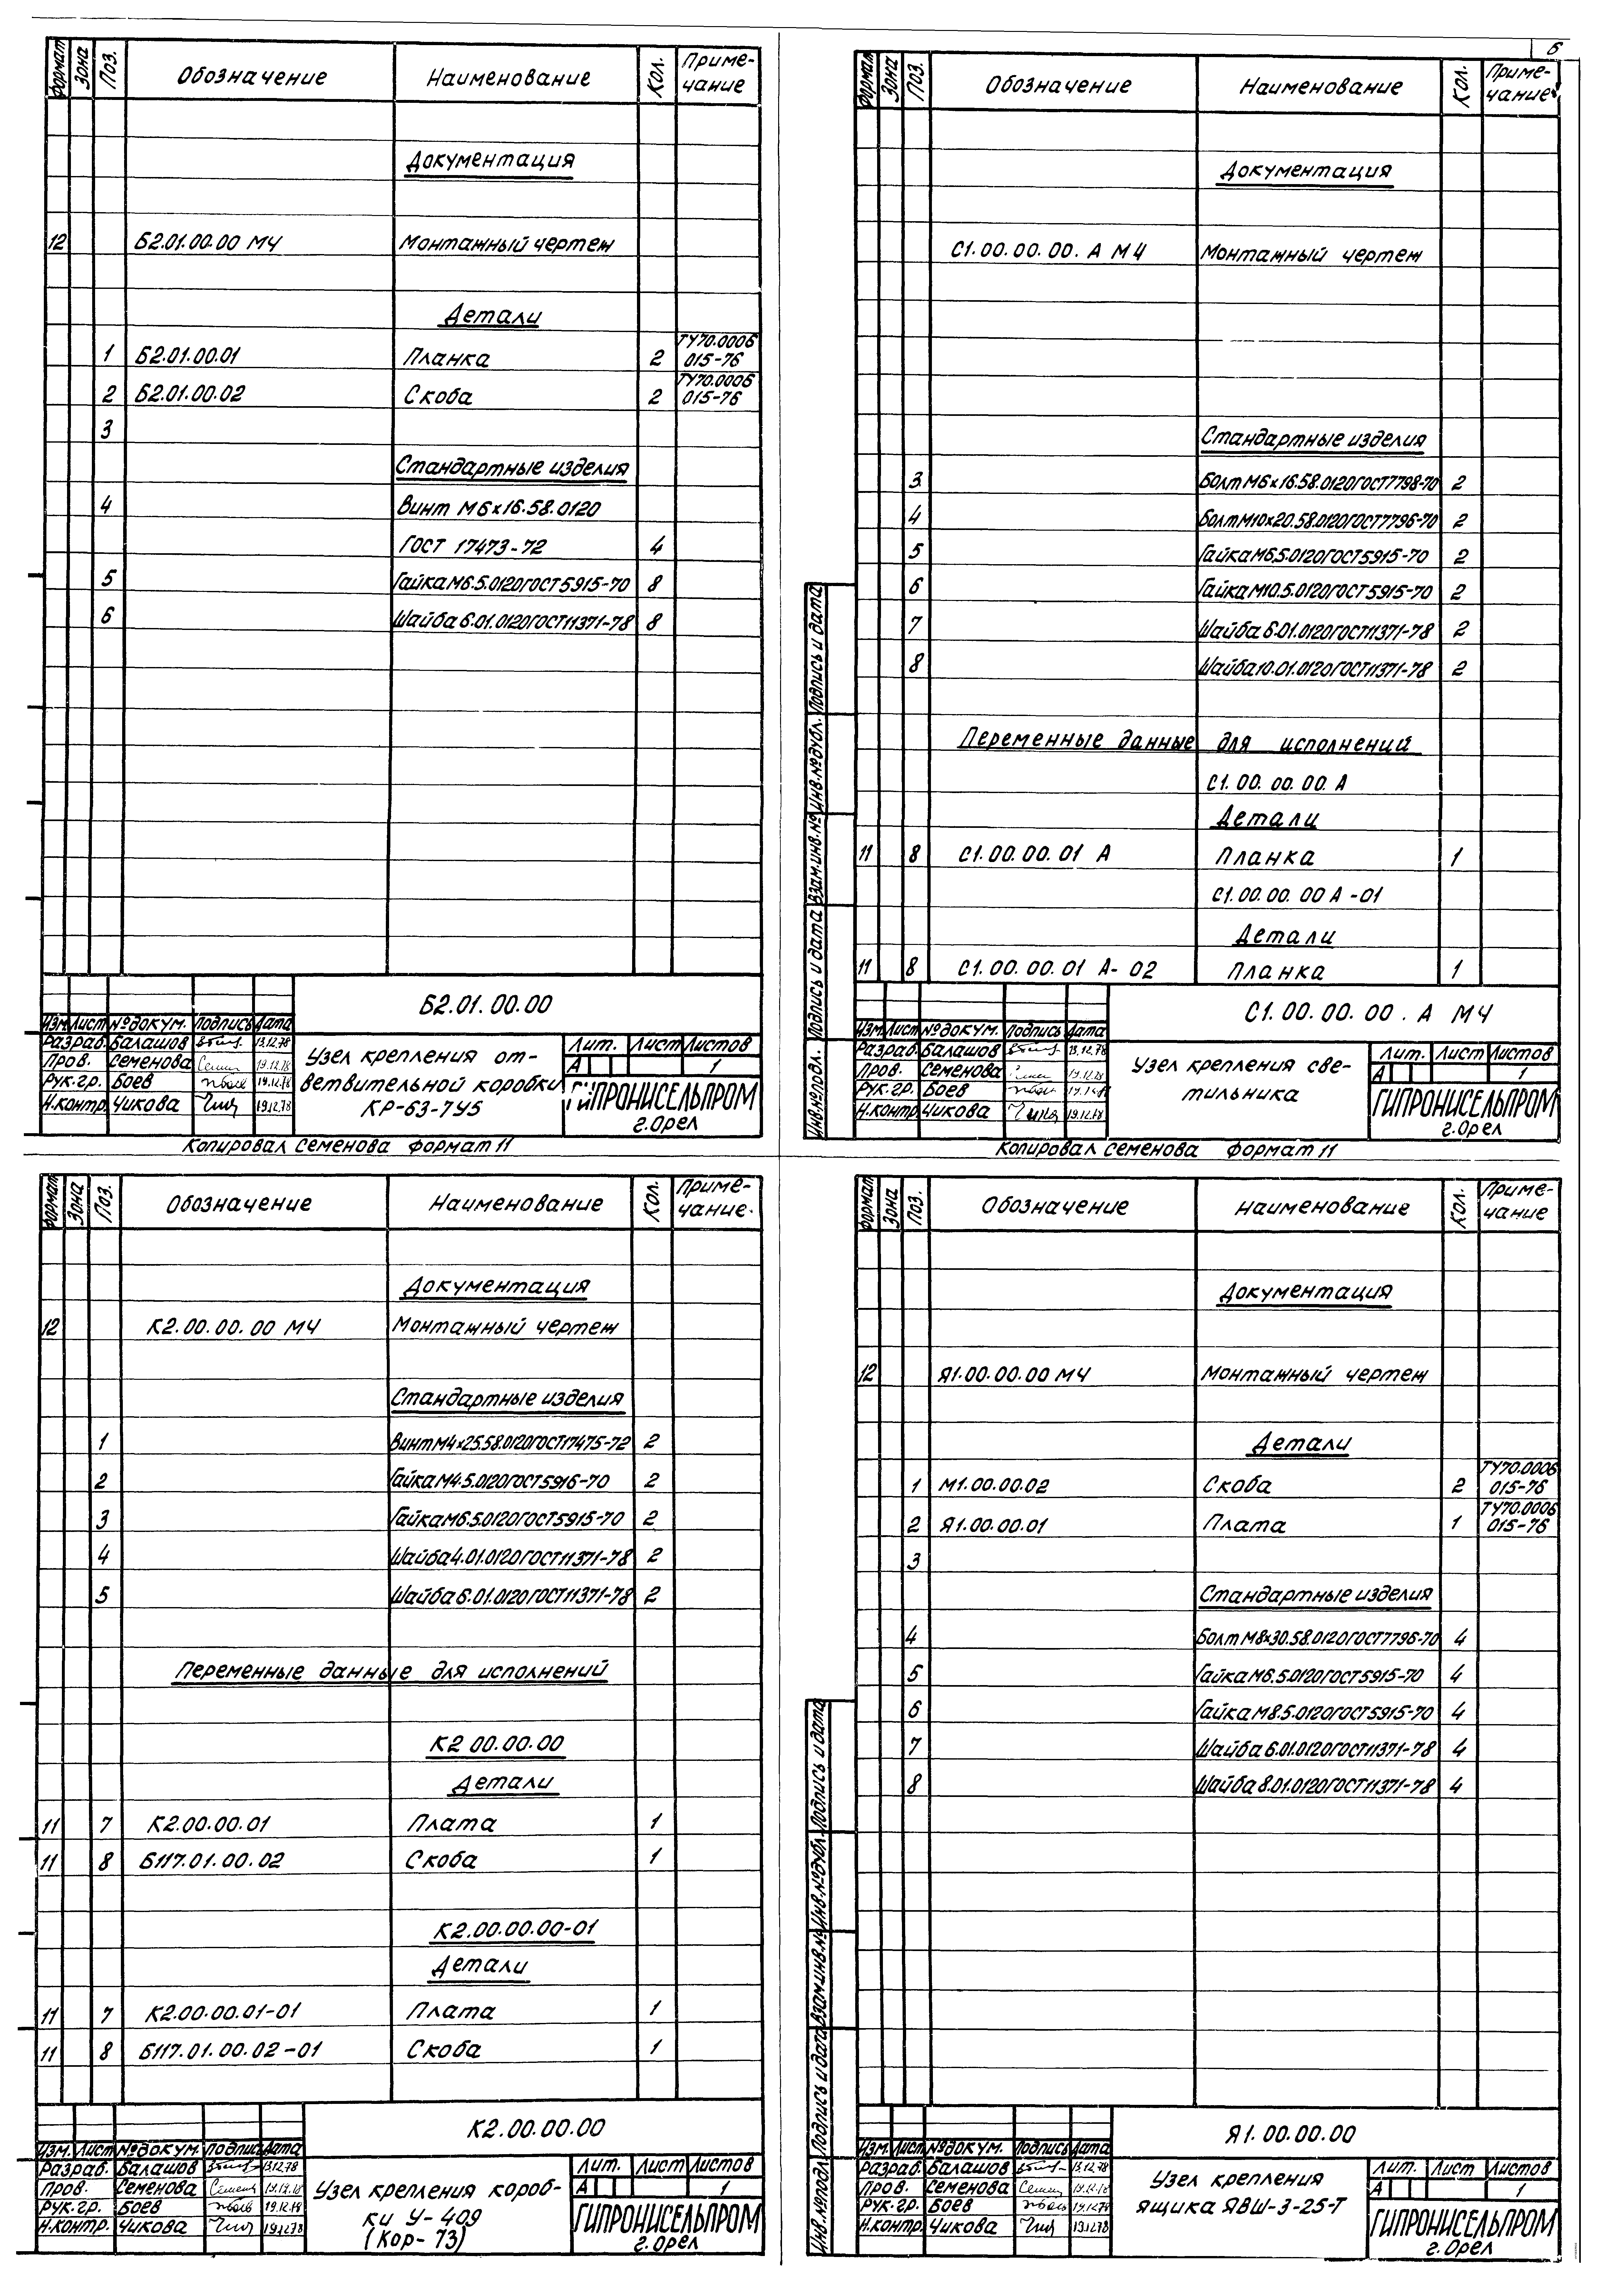 6
Формат Зона Поз. Обозначение Наименование Кол. Приме-
чание
Документация
12 Б2.01.00.00 МЧ Монтажный чертеж
Детали
ТУ70.0006
1 Б2.01.00.01 Планка 2 015-76
ТУ70.0006
2 Б2.01.00.02 Скоба 2 015-76
3
Стандартные изделия
4 Винт М6х16.58.0120
ГОСТ 17473-72 4
5 Гайка М6.5.0120 ГОСТ 5915-70 8
6 Шайба 6.01.0120 ГОСТ 11371-78 8
Б2.01.00.00
Изм. Лист №докум. Подпись Дата
Разраб. Балашов 13.12.78
Пров. Семенова 19.12.78
Рук.гр. Боев 19.12.78
Н.контр. Чикова 19.12.78
Узел крепления от-
ветвительной коробки
КР-63-7У5
Лит. Лист Листов
А 1
ГИПРОНИСЕЛЬПРОМ
г.Орел
Копировал Семенова Формат 11
Формат Зона Поз. Обозначение Наименование Кол. Приме-
чание
Документация
С1.00.00.00.А МЧ Монтажный чертеж
Стандартные изделия
3 Болт М6х16.58.0120 ГОСТ 7798-70 2
4 Болт М10х20.58.0120 ГОСТ 7796-70 2
5 Гайка М6.5.0120 ГОСТ 5915-70 2
6 Гайка М10.5.0120 ГОСТ 5915-70 2
7 Шайба 6.01.0120 ГОСТ 11371-78 2
8 Шайба 10.01.0120 ГОСТ 11371-78 2
Переменные данные для исполнений
С1.00.00.00.А
Детали
11 8 С1.00.00.01 А Планка 1
С1.00.00.00 А -01
Детали
11 8 С1.00.00.01 А- 02 Планка 1
Инв.№подл. Подпись и дата Взам.инв.№ Инв.№дубл. Подпись и дата
С1.00.00.00.А МЧ
Изм. Лист №докум. Подпись Дата
Разраб. Балашов 13.12.78
Пров. Семенова 19.12.78
Рук.гр. Боев
Н.контр. Чикова 19.12.78
Узел крепления све-
тильника
Лит. Лист Листов
А 1
ГИПРОНИСЕЛЬПРОМ
г.Орел
Копировал Семенова Формат 11
Формат Зона Поз. Обозначение Наименование Кол. Приме-
чание.
Документация
12 К2.00.00.00 МЧ Монтажный чертеж
Стандартные изделия
1 Винт М4х25.58.0120 ГОСТ 17475-72 2
2 Гайка М4.5.0120 ГОСТ 5916-70 2
3 Гайка М6.5.0120 ГОСТ 5915-70 2
4 Шайба 4.01.0120 ГОСТ 11371-78 2
5 Шайба 6.01.0120 ГОСТ 11371-78 2
Переменные данные для исполнений
К2 00.00.00
Детали
11 7 К2.00.00.01 Плата 1
11 8 Б117.01.00.02 Скоба 1
К2.00.00.00-01
Детали
11 7 К2.00.00.01-01 Плата 1
11 8 Б117.01.00.02-01 Скоба 1
К2.00.00.00
Изм. Лист №докум. Подпись Дата
Разраб. Балашов 13.12.78
Пров. Семенова 19.12.78
Рук.гр. Боев 19.12.78
Н.контр. Чикова 19.12.78
Узел крепления короб-
ки У-409
(Кор-73)
Лит. Лист Листов
А 1
ГИПРОНИСЕЛЬПРОМ
г.Орел
Формат Зона Поз. Обозначение Наименование Кол. Приме-
чание
Документация
12 Я1.00.00.00 МЧ Монтажный чертеж
Детали
ТУ70.0006
1 М1.00.00.02 Скоба 2 015-76
ТУ70.0006
2 Я1.00.00.01 Плата 1 015-76
3
Стандартные изделия
4 Болт М8х30.58.0120 ГОСТ 7796-70 4
5 Гайка М6.5.0120 ГОСТ 5915-70 4
6 Гайка М8.5.0120 ГОСТ 5915-70 4
7 Шайба 6.01.0120 ГОСТ 11371-78 4
8 Шайба 8.01.0120 ГОСТ 11371-78 4
Инв.№подл. Подпись и дата Взам.инв.№ Инв.№дубл. Подпись и дата
Я1.00.00.00
Изм. Лист №докум. Подпись Дата
Разраб. Балашов 13.12.78
Пров. Семенова 19.12.78
Рук.гр. Боев 19.12.78
Н.контр. Чикова 19.12.78
Узел крепления
ящика ЯВШ-3-25-Т
Лит. Лист Листов
А 1
ГИПРОНИСЕЛЬПРОМ
г.Орел